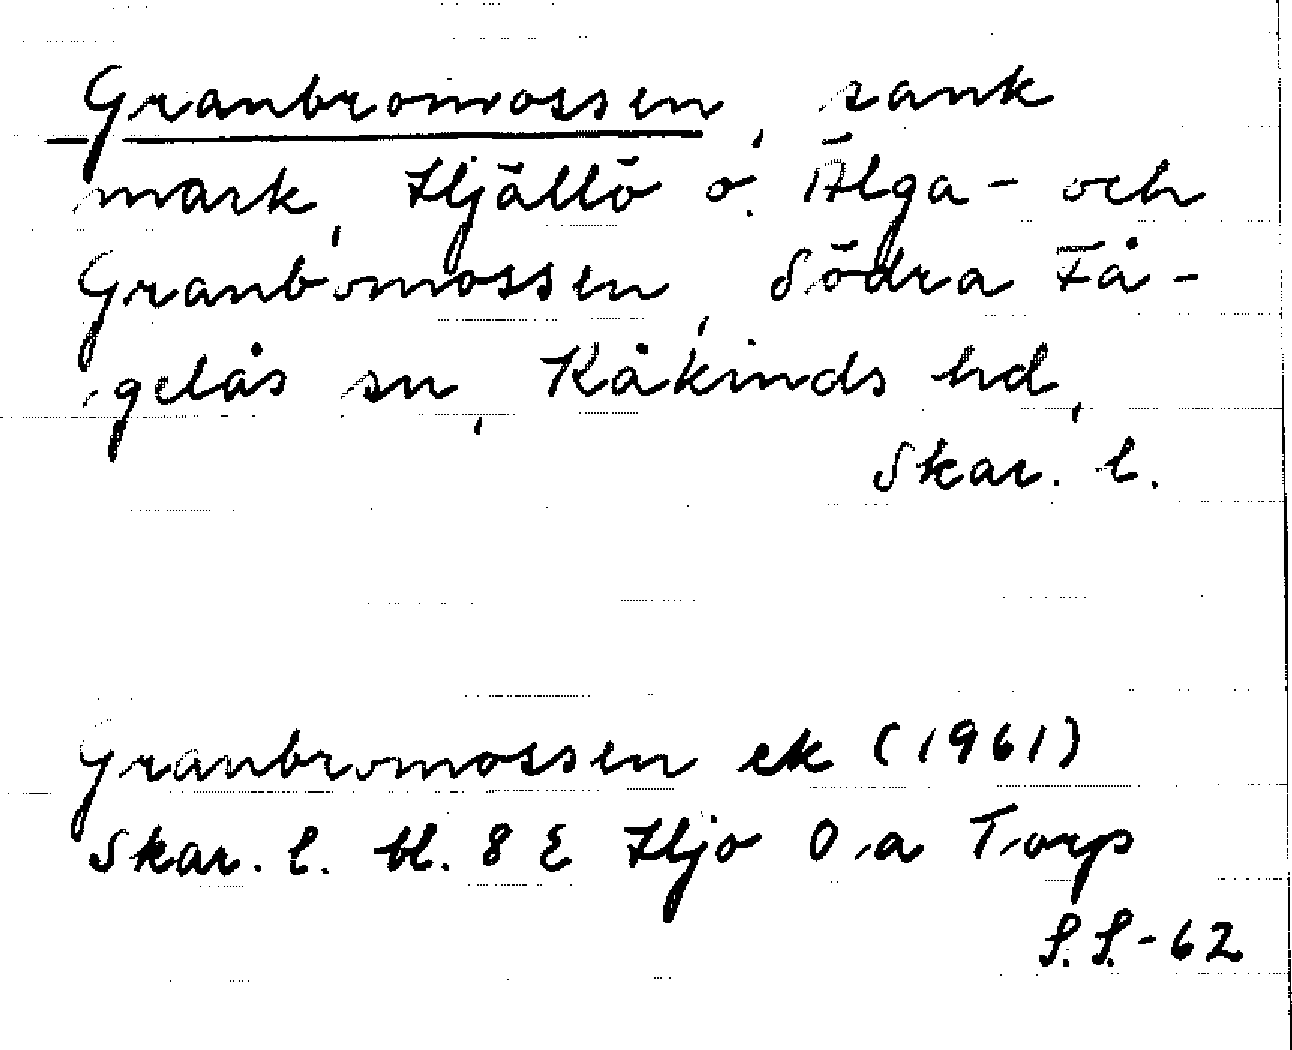 Granbromossen, sank
mark, Hjällö o. Älga- och
Granbomossen, Södra Få-
gelås sn, Kåkinds hd,
Skar. l.
Granbromossen ek (1961)
Skar. l. bl. 8 E Hjo O.a Torp
S.S.-62